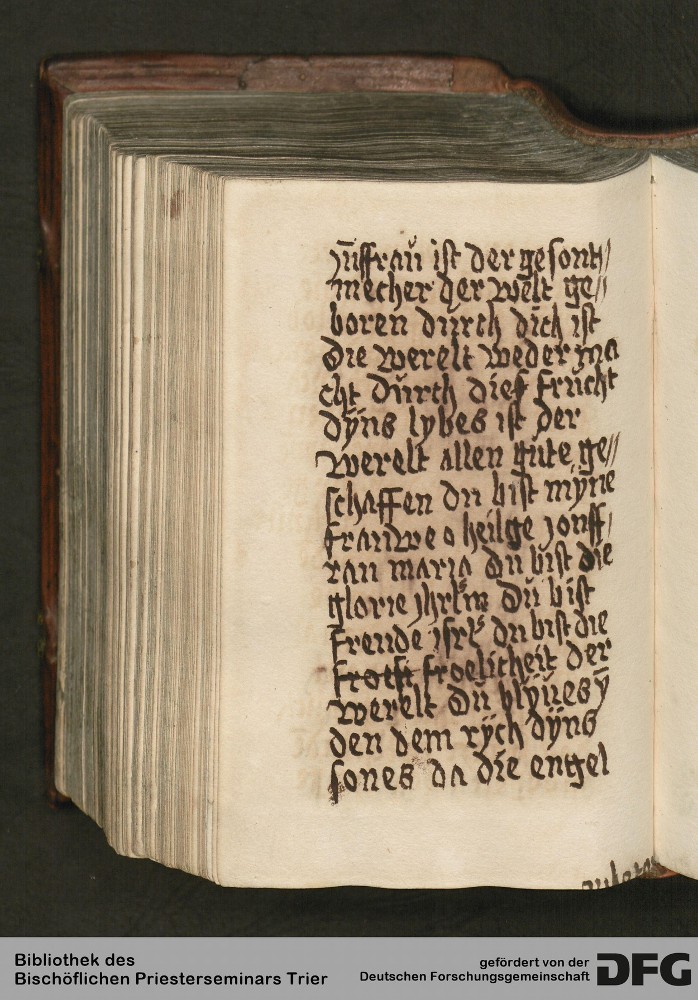 Jūffrau ist der gesont//
mecher der werlt ge//
boren durch dich ist
die werelt weder ma
cht durch dies frucht
dÿns lybes ist der
werelt allen gute ge//
schaffen du bist myne
frauwe o heilge Jonff/
rau maria du bist die
glorie Jhrl'm du bist
freude isrl' du bist die
frotst froelicheit der
werelt du blyues ÿ
den dem rÿch dÿns
sones da die engel
Bibliothek des
Bischöflichen Priesterseminars Trier
gefördert von der
Deutschen Forschungsgemeinschaft DFG